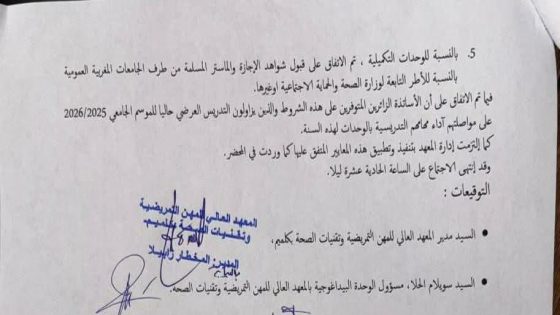 5. بالنسبة للوحدات التكميلية ، تم الاتفاق على قبول شواهد الإجازة والماستر المسلمة من طرف الجامعات المغربية العمومية
بالنسبة للأطر التابعة لوزارة الصحة والحماية الاجتماعية اوغيرها.
فيما تم الاتفاق على أن الأساتذة الزائرين المتوفرين على هذه الشروط والذين يزاولون التدريس العرضي حاليا للموسم الجامعي 2026/2025
على مواصلتهم آداء محامهم التدريسية بالوحدات لهذه السنة.
كما إلتزمت إدارة المعهد بتنفيذ وتطبيق هذه المعايير المتفق عليها كما وردت في المحضر.
وقد إنتهى الاجتماع على الساعة الحادية عشرة ليلا.
التوقيعات :
المعهد العالي للمهن التمريضية
وتقنيات الصحة بكلميم
• السيد مدير المعهد العالي للمهن التمريضية وتقنيات الصحة بكلميم،
المدير: المختار
• السيد سويلام الحلا، مسؤول الوحدة البيداغوجية بالمعهد العالي للمهن التمريضية وتقنيات الصحة.